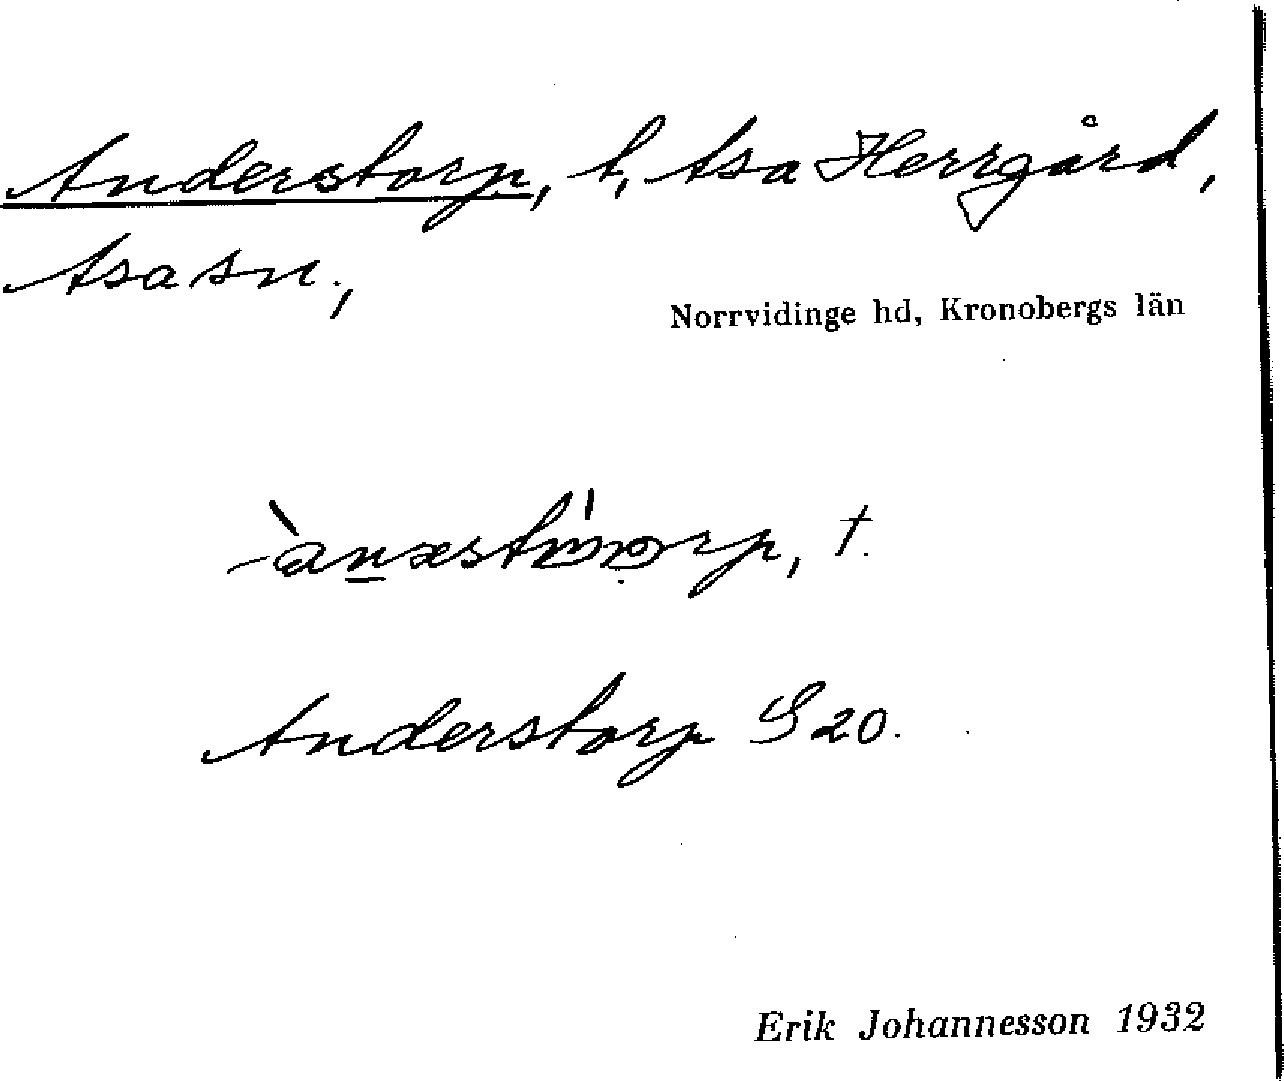 Anderstorp, t, Asa Herrgård,
Asa sn.,
Norrvidinge hd, Kronobergs län
t.
Anderstorp S 20.
Erik Johannesson 1932